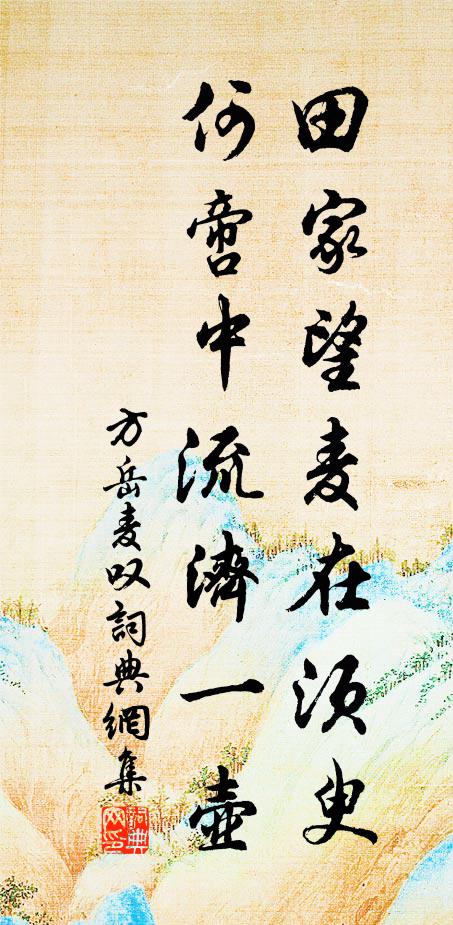 田家望麦在须臾
何啻中流濟一壺
方岳麦叹詞典網集